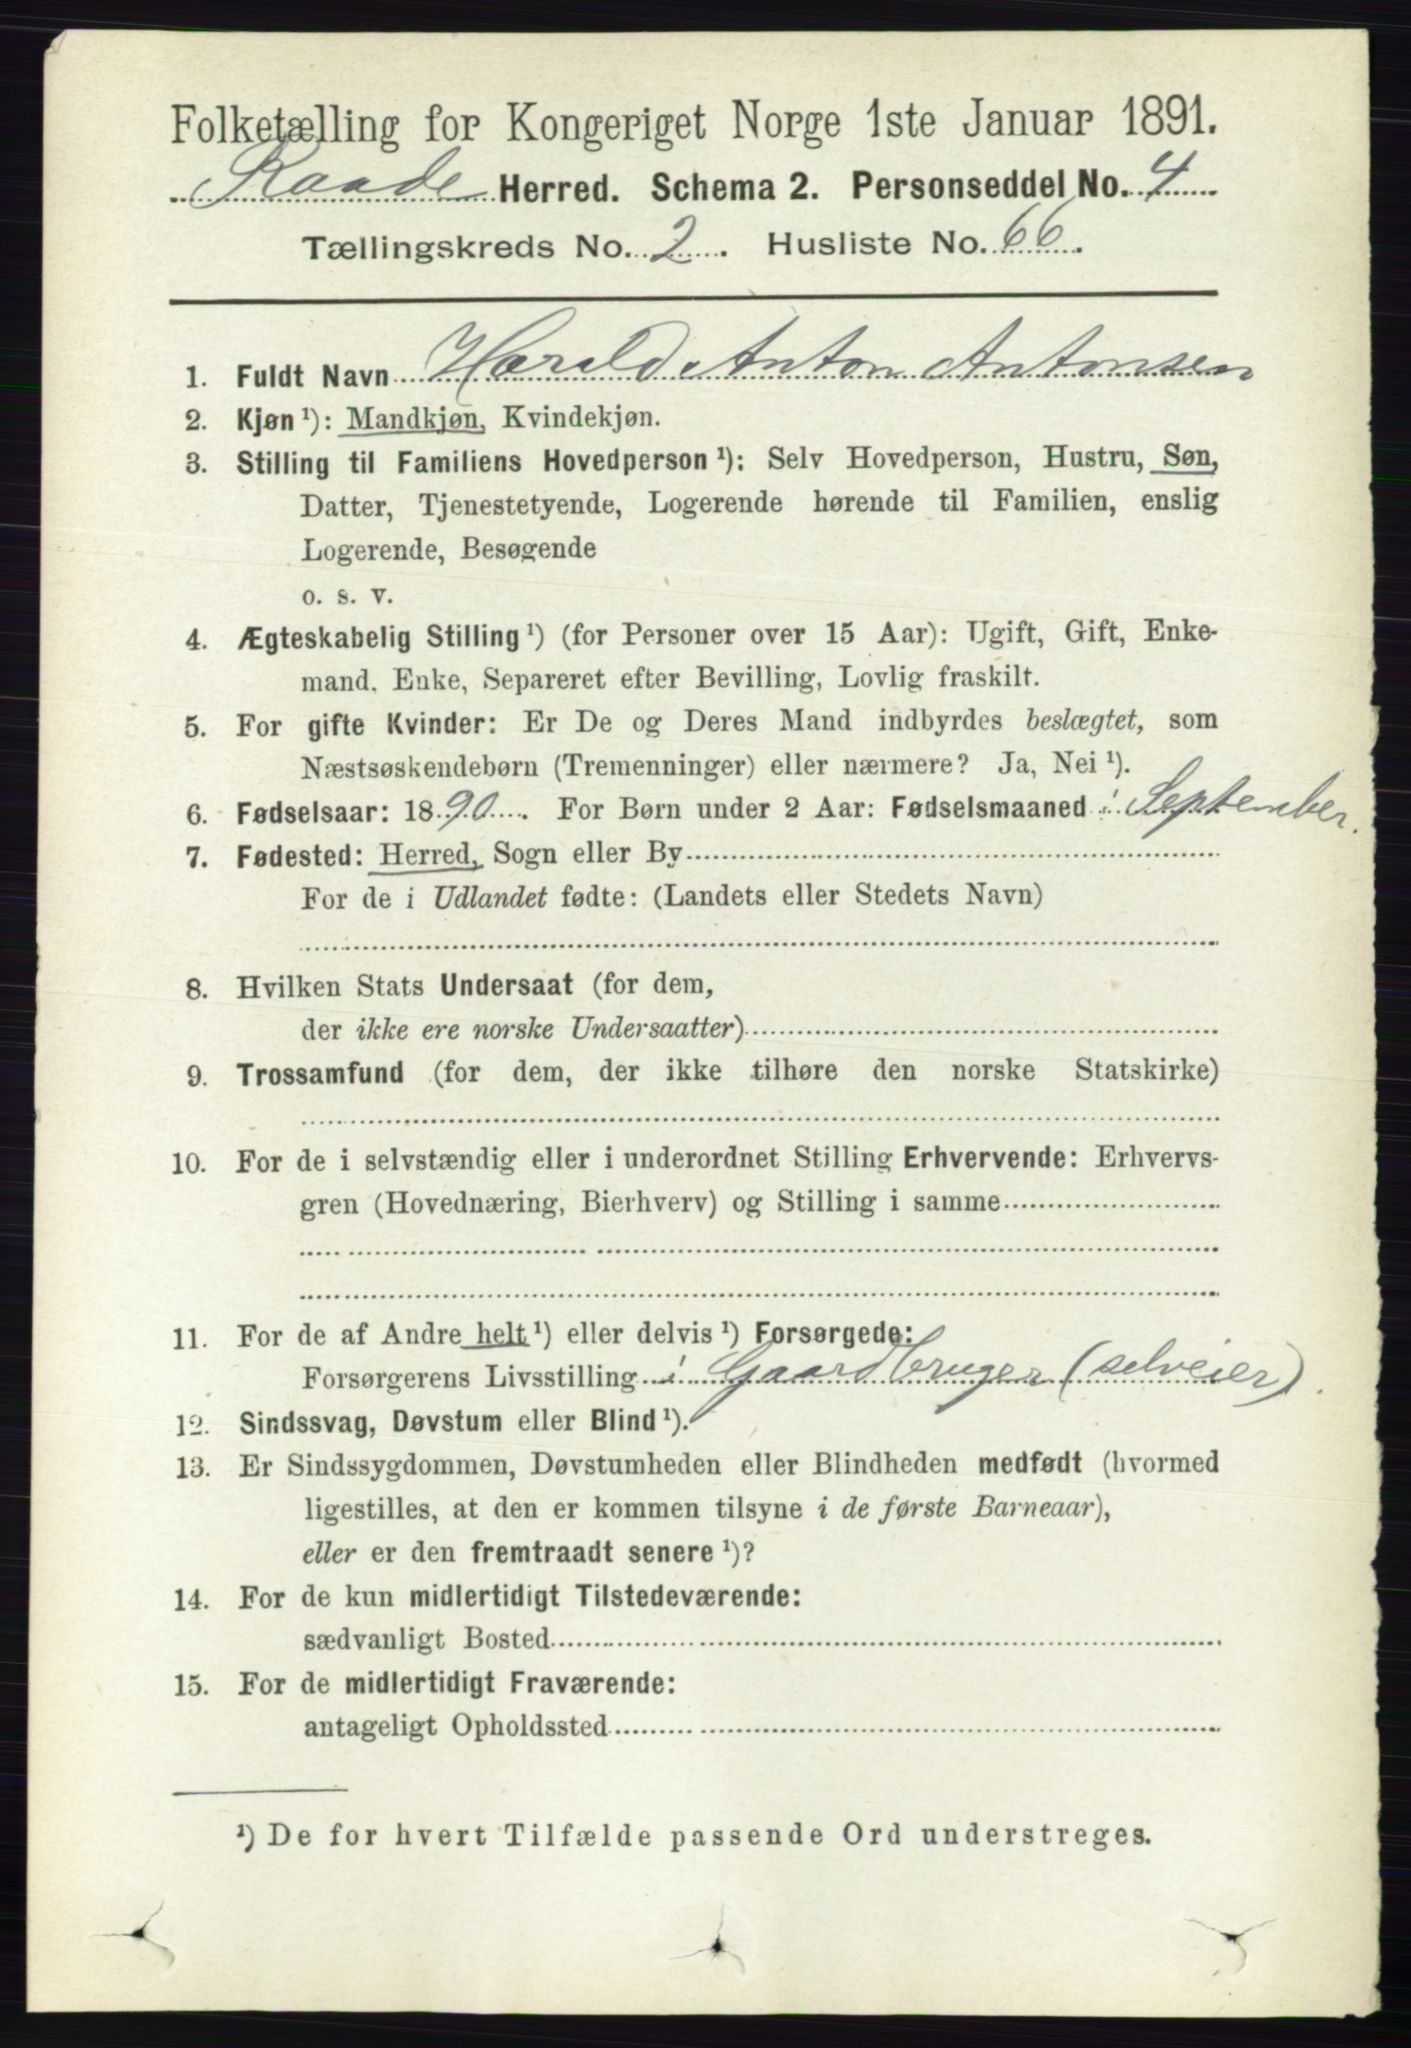 Folketælling for Kongeriget Norge 1ste Januar 1891.
Raade Herred. Schema 2. Personseddel No. 4
Tællingskreds No. 2. Husliste No. 66.
1. Fuldt Navn Harald Anton Antonsen
2. Kjøn ¹): Mandkjøn, Kvindekjøn.
3. Stilling til Familiens Hovedperson ¹): Selv Hovedperson, Hustru, Søn,
Datter, Tjenestetyende, Logerende hørende til Familien, enslig
Logerende, Besøgende
o. s. v.
4. Ægteskabelig Stilling ¹) (for Personer over 15 Aar): Ugift, Gift, Enke-
mand, Enke, Separeret efter Bevilling, Lovlig fraskilt.
5. For gifte Kvinder: Er De og Deres Mand indbyrdes beslægtet, som
Næstsøskendebørn (Tremenninger) eller nærmere? Ja, Nei ¹).
6. Fødselsaar: 1890. For Børn under 2 Aar: Fødselsmaaned i September.
7. Fødested: Herred, Sogn eller By
For de i Udlandet fødte: (Landets eller Stedets Navn)
8. Hvilken Stats Undersaat (for dem,
der ikke ere norske Undersaatter)
9. Trossamfund (for dem, der ikke tilhøre den norske Statskirke)
10. For de i selvstændig eller i underordnet Stilling Erhvervende: Erhvervs-
gren (Hovednæring, Bierhverv) og Stilling i samme
11. For de af Andre helt ¹) eller delvis ¹) Forsørgede:
Forsørgerens Livsstilling i Gaardbruger (selveier).
12. Sindssvag, Døvstum eller Blind ¹).
13. Er Sindssygdommen, Døvstumheden eller Blindheden medfødt (hvormed
ligestilles, at den er kommen tilsyne i de første Barneaar),
eller er den fremtraadt senere ¹)?
14. For de kun midlertidigt Tilstedeværende:
sædvanligt Bosted
15. For de midlertidigt Fraværende:
antageligt Opholdssted
¹) De for hvert Tilfælde passende Ord understreges.